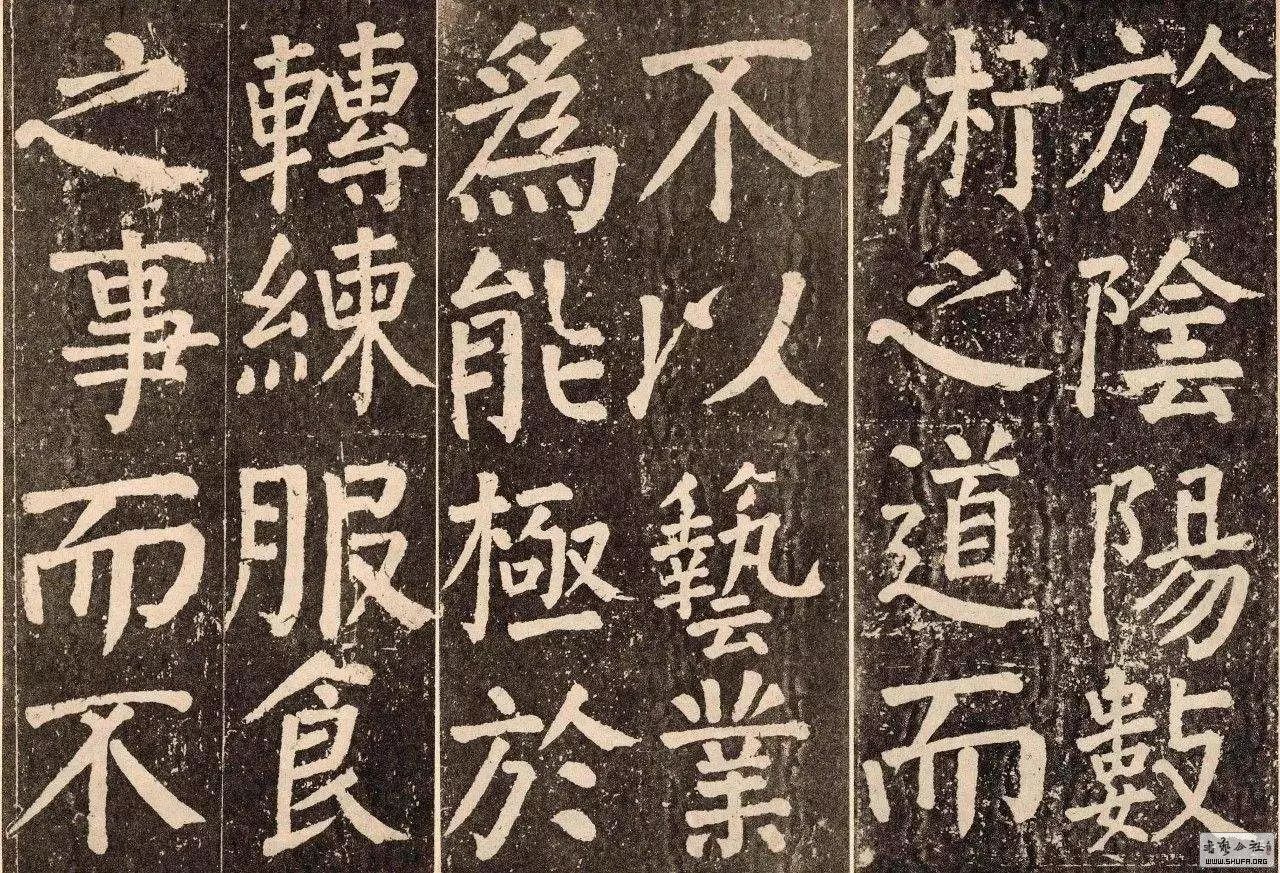 於陰陽數
術之道而
不以藝業
為能極於
轉練服食
之事而不
WWW.SHUFA.ORG